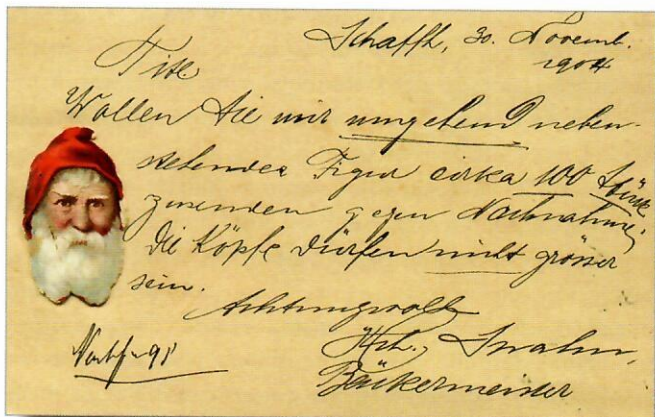 Schaffh, 30. Novemb.
1904
Titl.
Wollen Sie mir umgehend neben-
stehender Figur cirka 100 Stück
zusenden gegen Nachnahme;
die Köpfe dürfen nicht grösser
sein.
Achtungsvoll
Hch.
Bäckermeister